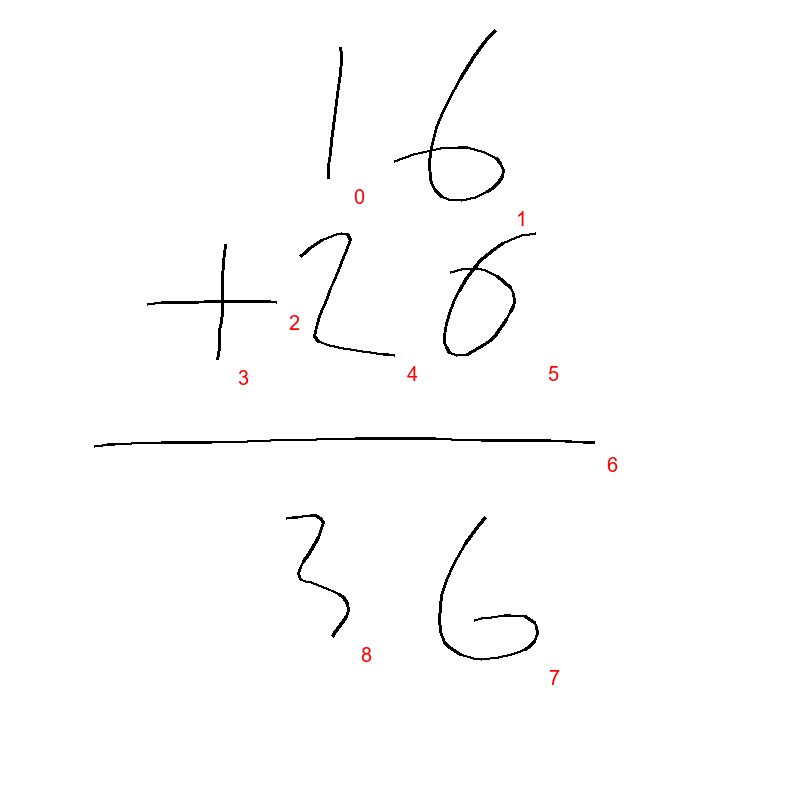 16
0
1
+ 26
2
3 4 5
6
36
8
7